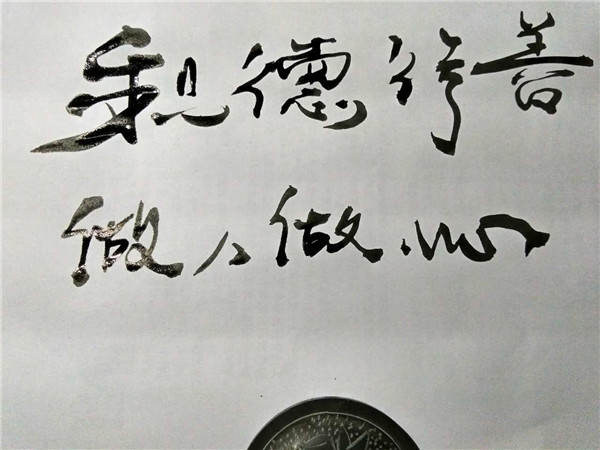 积德行善
做人做心